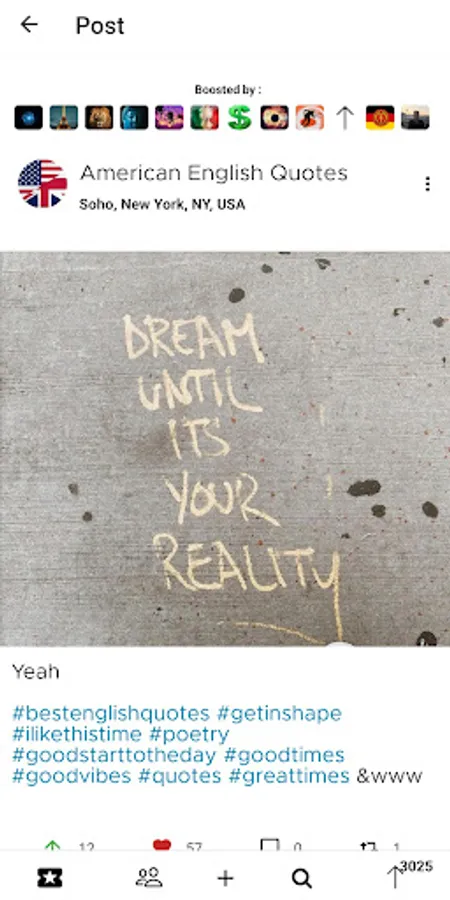 Post
Boosted by :
American English Quotes
Soho, New York, NY, USA
DREAM
UNTIL
ITS
YOUR
REALITY
Yeah
#bestenglishquotes #getinshape
#ilikethistime #poetry
#goodstarttotheday #goodtimes
#goodvibes #quotes #greattimes &www
12 57 0 1
3025